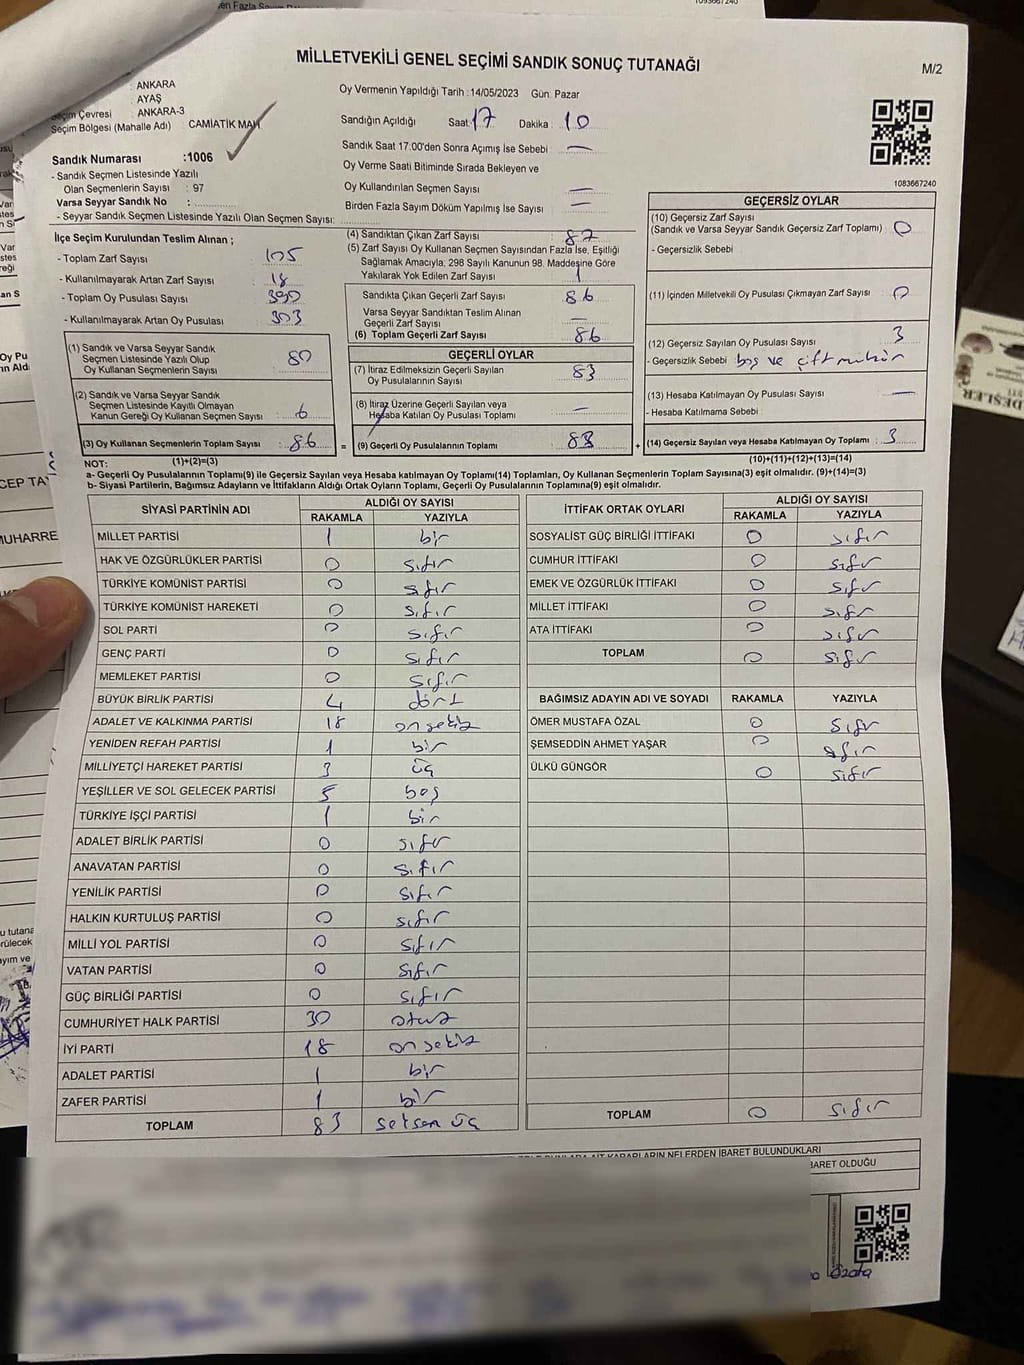 en Fazla Se
1093667240
MİLLETVEKİLİ GENEL SEÇİMİ SANDIK SONUÇ TUTANAĞI
M/2
: ANKARA
: AYAŞ
Seçim Çevresi : ANKARA-3
Seçim Bölgesi (Mahalle Adı) CAMİATİK MAH
Sandık Numarası :1006
- Sandık Seçmen Listesinde Yazılı
Olan Seçmenlerin Sayısı : 97
Varsa Seyyar Sandık No :
- Seyyar Sandık Seçmen Listesinde Yazılı Olan Seçmen Sayısı:
Oy Vermenin Yapıldığı Tarih :14/05/2023 Gün: Pazar
Sandığın Açıldığı Saat: 17 Dakika : 10
Sandık Saat 17.00'den Sonra Açımış İse Sebebi : —
Oy Verme Saati Bitiminde Sırada Bekleyen ve
Oy Kullandırılan Seçmen Sayısı —
Birden Fazla Sayım Döküm Yapılmış İse Sayısı —
1083667240
İlçe Seçim Kurulundan Teslim Alınan ;
- Toplam Zarf Sayısı : 105
- Kullanılmayarak Artan Zarf Sayısı : 18
- Toplam Oy Pusulası Sayısı : 390
- Kullanılmayarak Artan Oy Pusulası : 303
(1) Sandık ve Varsa Seyyar Sandık
Seçmen Listesinde Yazılı Olup
Oy Kullanan Seçmenlerin Sayısı : 80
(2) Sandık ve Varsa Seyyar Sandık
Seçmen Listesinde Kayıtlı Olmayan
Kanun Gereği Oy Kullanan Seçmen Sayısı : 6
(3) Oy Kullanan Seçmenlerin Toplam Sayısı : 86
(4) Sandıktan Çıkan Zarf Sayısı : 87
(5) Zarf Sayısı Oy Kullanan Seçmen Sayısından Fazla İse, Eşitliği
Sağlamak Amacıyla; 298 Sayılı Kanunun 98. Maddesine Göre
Yakılarak Yok Edilen Zarf Sayısı : 1
Sandıkta Çıkan Geçerli Zarf Sayısı : 86
Varsa Seyyar Sandıktan Teslim Alınan
Geçerli Zarf Sayısı : —
(6) Toplam Geçerli Zarf Sayısı : 86
GEÇERLİ OYLAR
(7) İtiraz Edilmeksizin Geçerli Sayılan
Oy Pusulalarının Sayısı : 83
(8) İtiraz Üzerine Geçerli Sayılan veya
Hesaba Katılan Oy Pusulası Toplamı : —
= (9) Geçerli Oy Pusulalarının Toplamı : 83
GEÇERSİZ OYLAR
(10) Geçersiz Zarf Sayısı
(Sandık ve Varsa Seyyar Sandık Geçersiz Zarf Toplamı) : 0
- Geçersizlik Sebebi
(11) İçinden Milletvekili Oy Pusulası Çıkmayan Zarf Sayısı : 0
(12) Geçersiz Sayılan Oy Pusulası Sayısı : 3
- Geçersizlik Sebebi boş ve çift mühür
(13) Hesaba Katılmayan Oy Pusulası Sayısı : —
- Hesaba Katılmama Sebebi :
+ (14) Geçersiz Sayılan veya Hesaba Katılmayan Oy Toplamı : 3
NOT: (1)+(2)=(3)
(10)+(11)+(12)+(13)=(14)
a- Geçerli Oy Pusulalarının Toplamı(9) ile Geçersiz Sayılan veya Hesaba katılmayan Oy Toplamı(14) Toplamları, Oy Kullanan Seçmenlerin Toplam Sayısına(3) eşit olmalıdır. (9)+(14)=(3)
b- Siyasi Partilerin, Bağımsız Adayların ve İttifakların Aldığı Ortak Oyların Toplamı, Geçerli Oy Pusulalarının Toplamına(9) eşit olmalıdır.
SİYASİ PARTİNİN ADI ALDIĞI OY SAYISI
RAKAMLA YAZIYLA
MİLLET PARTİSİ 1 bir
HAK VE ÖZGÜRLÜKLER PARTİSİ 0 sıfır
TÜRKİYE KOMÜNİST PARTİSİ 0 sıfır
TÜRKİYE KOMÜNİST HAREKETİ 0 sıfır
SOL PARTİ 0 sıfır
GENÇ PARTİ 0 sıfır
MEMLEKET PARTİSİ 0 sıfır
BÜYÜK BİRLİK PARTİSİ 4 dört
ADALET VE KALKINMA PARTİSİ 18 on sekiz
YENİDEN REFAH PARTİSİ 1 bir
MİLLİYETÇİ HAREKET PARTİSİ 3 üç
YEŞİLLER VE SOL GELECEK PARTİSİ 5 beş
TÜRKİYE İŞÇİ PARTİSİ 1 bir
ADALET BİRLİK PARTİSİ 0 sıfır
ANAVATAN PARTİSİ 0 sıfır
YENİLİK PARTİSİ 0 sıfır
HALKIN KURTULUŞ PARTİSİ 0 sıfır
MİLLİ YOL PARTİSİ 0 sıfır
VATAN PARTİSİ 0 sıfır
GÜÇ BİRLİĞİ PARTİSİ 0 sıfır
CUMHURİYET HALK PARTİSİ 30 otuz
İYİ PARTİ 18 on sekiz
ADALET PARTİSİ 1 bir
ZAFER PARTİSİ 1 bir
TOPLAM 83 seksen üç
İTTİFAK ORTAK OYLARI ALDIĞI OY SAYISI
RAKAMLA YAZIYLA
SOSYALİST GÜÇ BİRLİĞİ İTTİFAKI 0 sıfır
CUMHUR İTTİFAKI 0 sıfır
EMEK VE ÖZGÜRLÜK İTTİFAKI 0 sıfır
MİLLET İTTİFAKI 0 sıfır
ATA İTTİFAKI 0 sıfır
TOPLAM 0 sıfır
BAĞIMSIZ ADAYIN ADI VE SOYADI RAKAMLA YAZIYLA
ÖMER MUSTAFA ÖZAL 0 sıfır
ŞEMSEDDİN AHMET YAŞAR 0 sıfır
ÜLKÜ GÜNGÖR 0 sıfır
TOPLAM 0 sıfır
KARARLARIN NELERDEN İBARET BULUNDUKLARI
BARET OLDUĞU